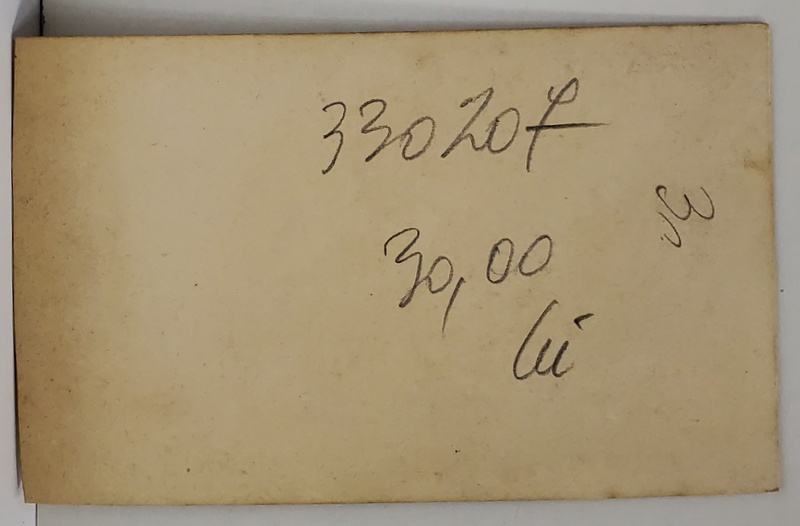 330207
30,00
lei